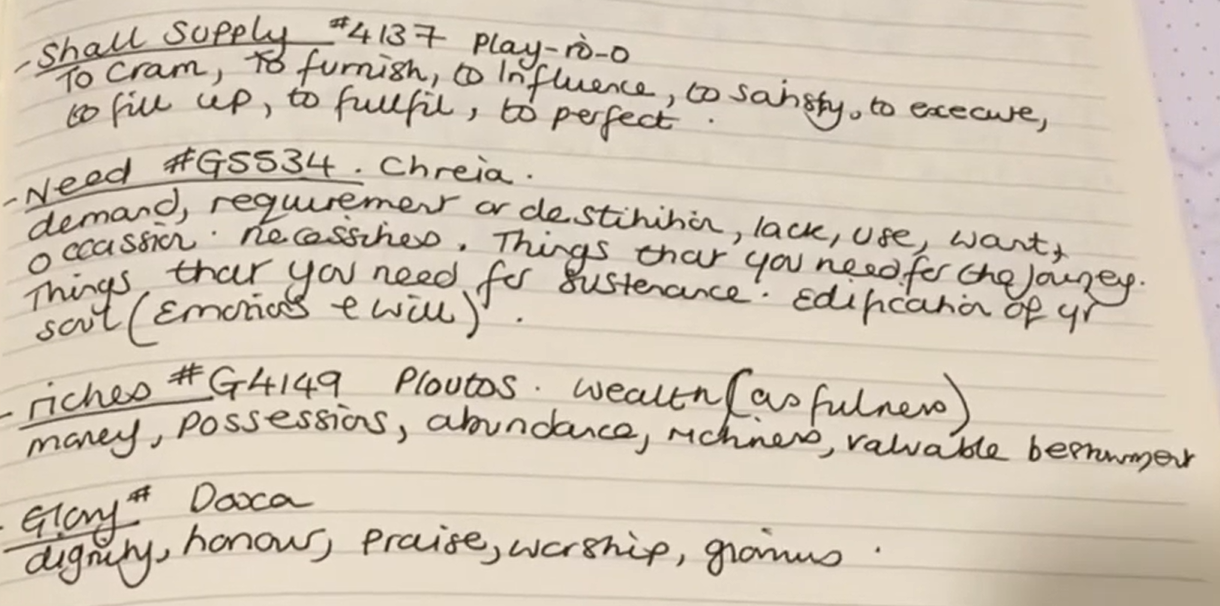 - Shall Supply #4137 Play-rò-o
To Cram, To furnish, to Influence, to satisfy, to execute,
to fill up, to fullfil, to perfect.
- Need #G5534. Chreia.
demand, requirement or destitution, lack, use, want,
occassion. necessities. Things that you need for the Journey.
Things that you need for sustenance. Edification of yr
soul (Emotions & will).
- riches #G4149 Ploutos. Wealth (as fulness)
money, possessions, abundance, richness, valuable bestowment
- Glory # Doxa
dignity, honour, praise, worship,